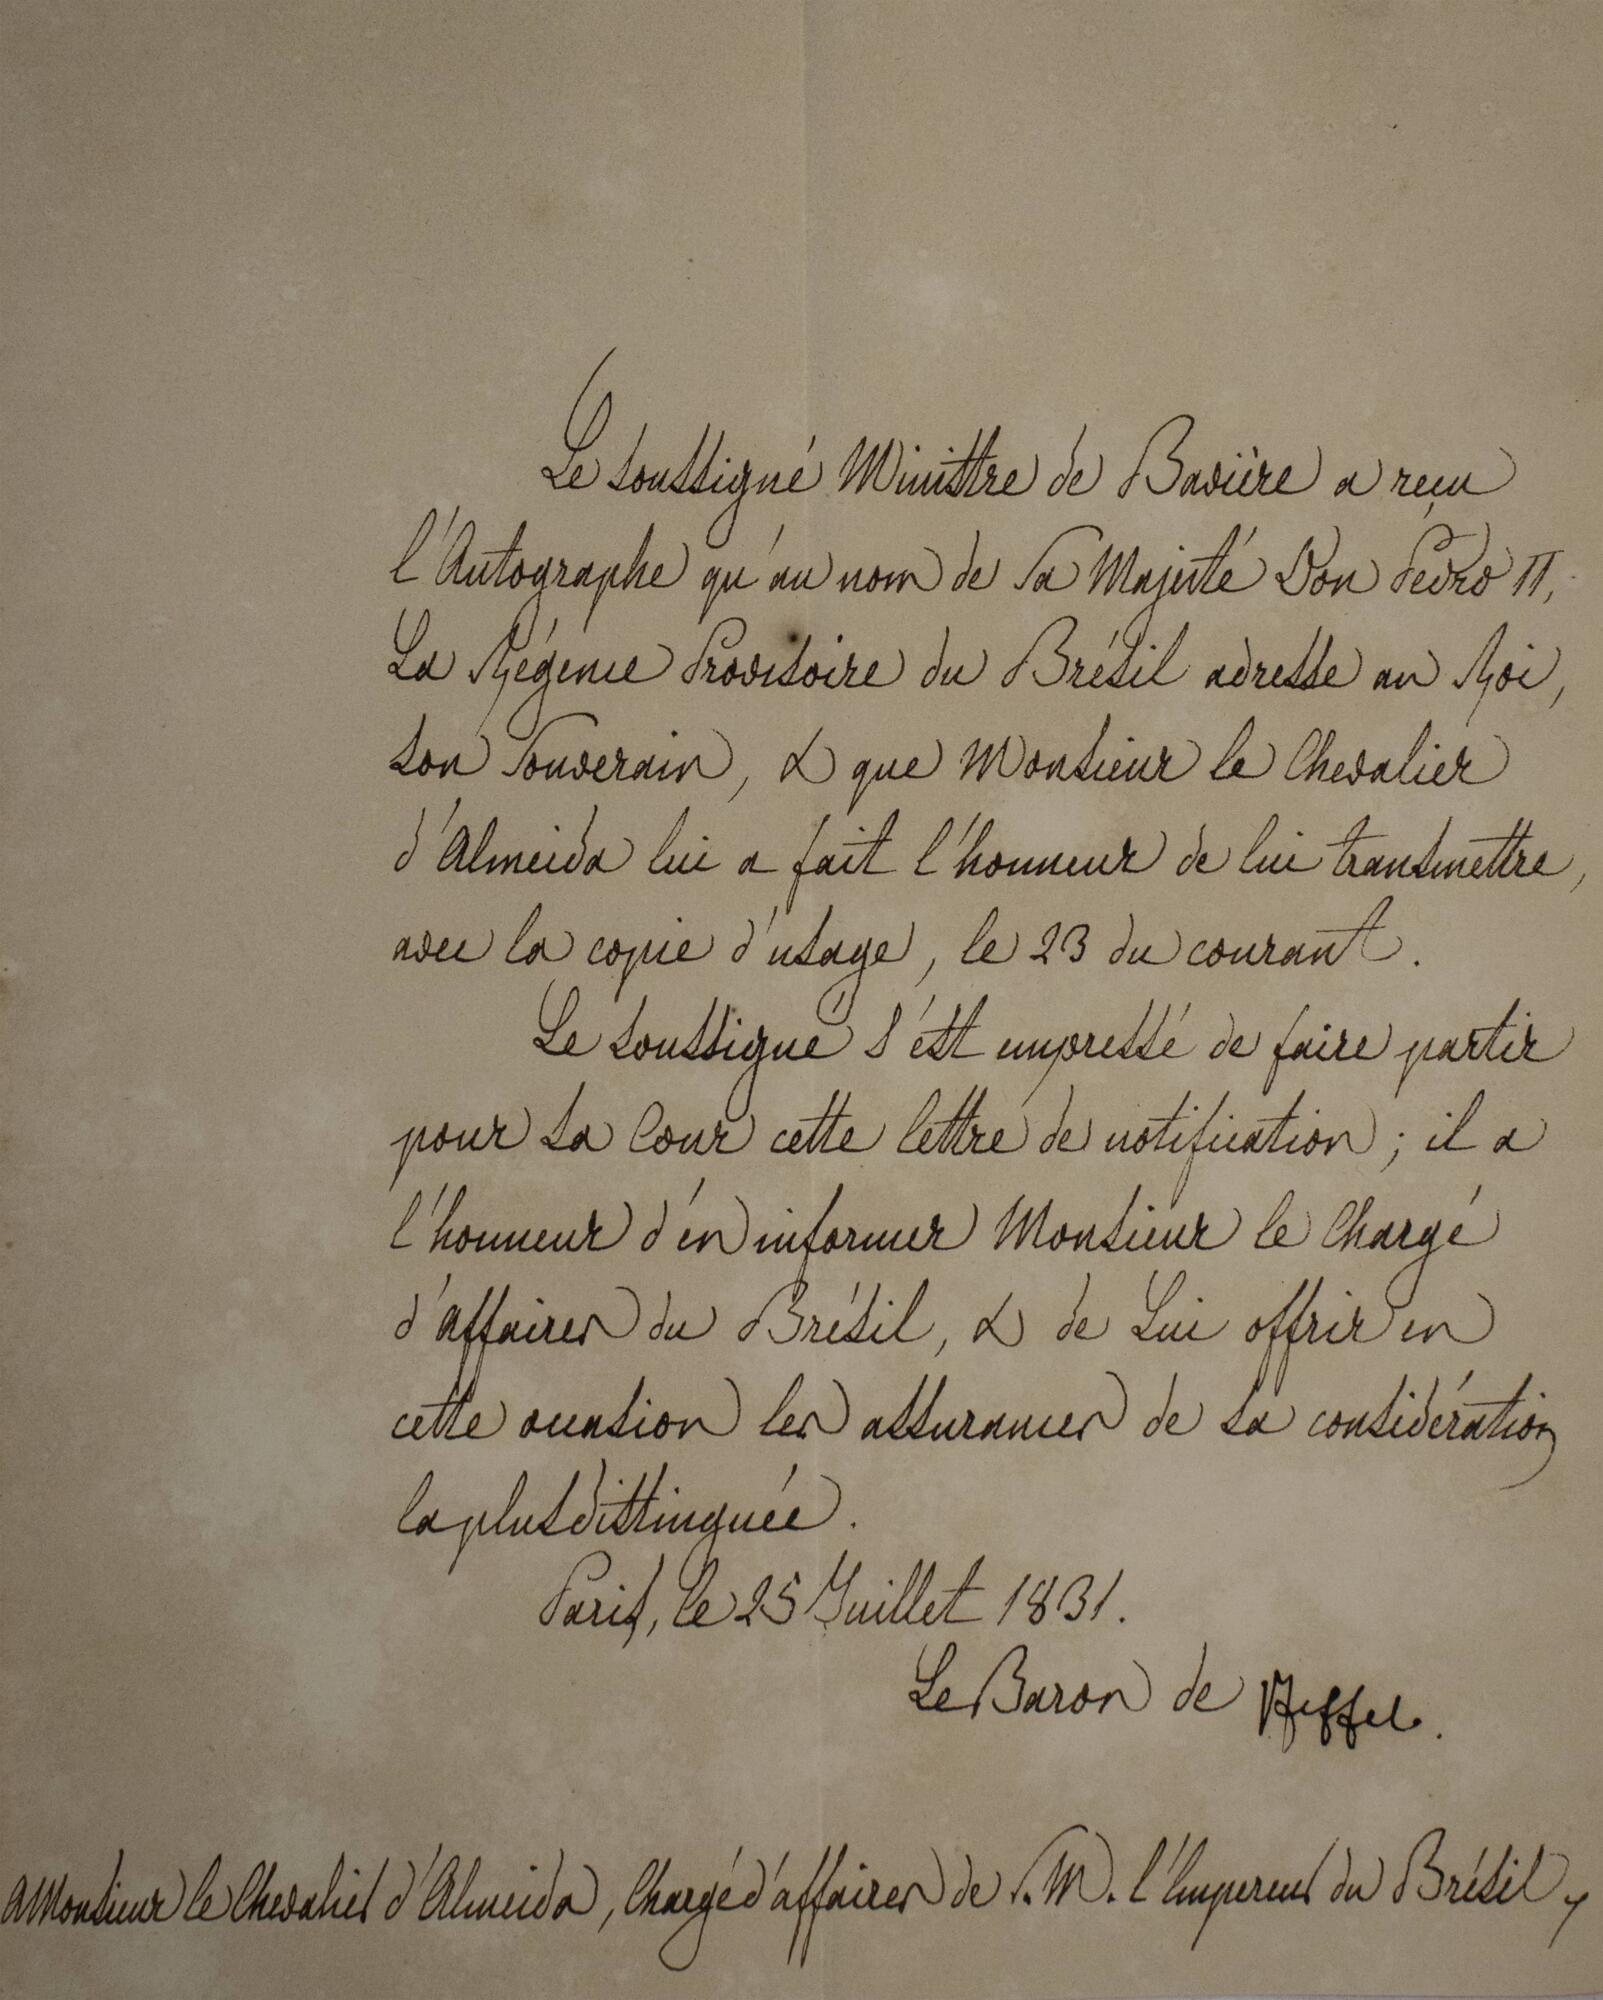 Le soussigné Ministre de Bavière a reçu
l'Autographe qu'au nom de Sa Majesté Don Pedro II,
La Régence Provisoire du Brésil adresse au Roi,
son Souverain, & que Monsieur le Chevalier
d'Almeida lui a fait l'honneur de lui transmettre,
avec la copie d'usage, le 23 du courant.
Le soussigné s'est empressé de faire partir
pour sa Cour cette lettre de notification ; il a
l'honneur d'en informer Monsieur le Chargé
d'affaires du Brésil, & de Lui offrir en
cette occasion les assurances de sa considération
la plus distinguée.
Paris, le 25 Juillet 1831.
Le Baron de
A Monsieur le Chevalier d'Almeida, Chargé d'affaires de S. M. l'Empereur du Brésil